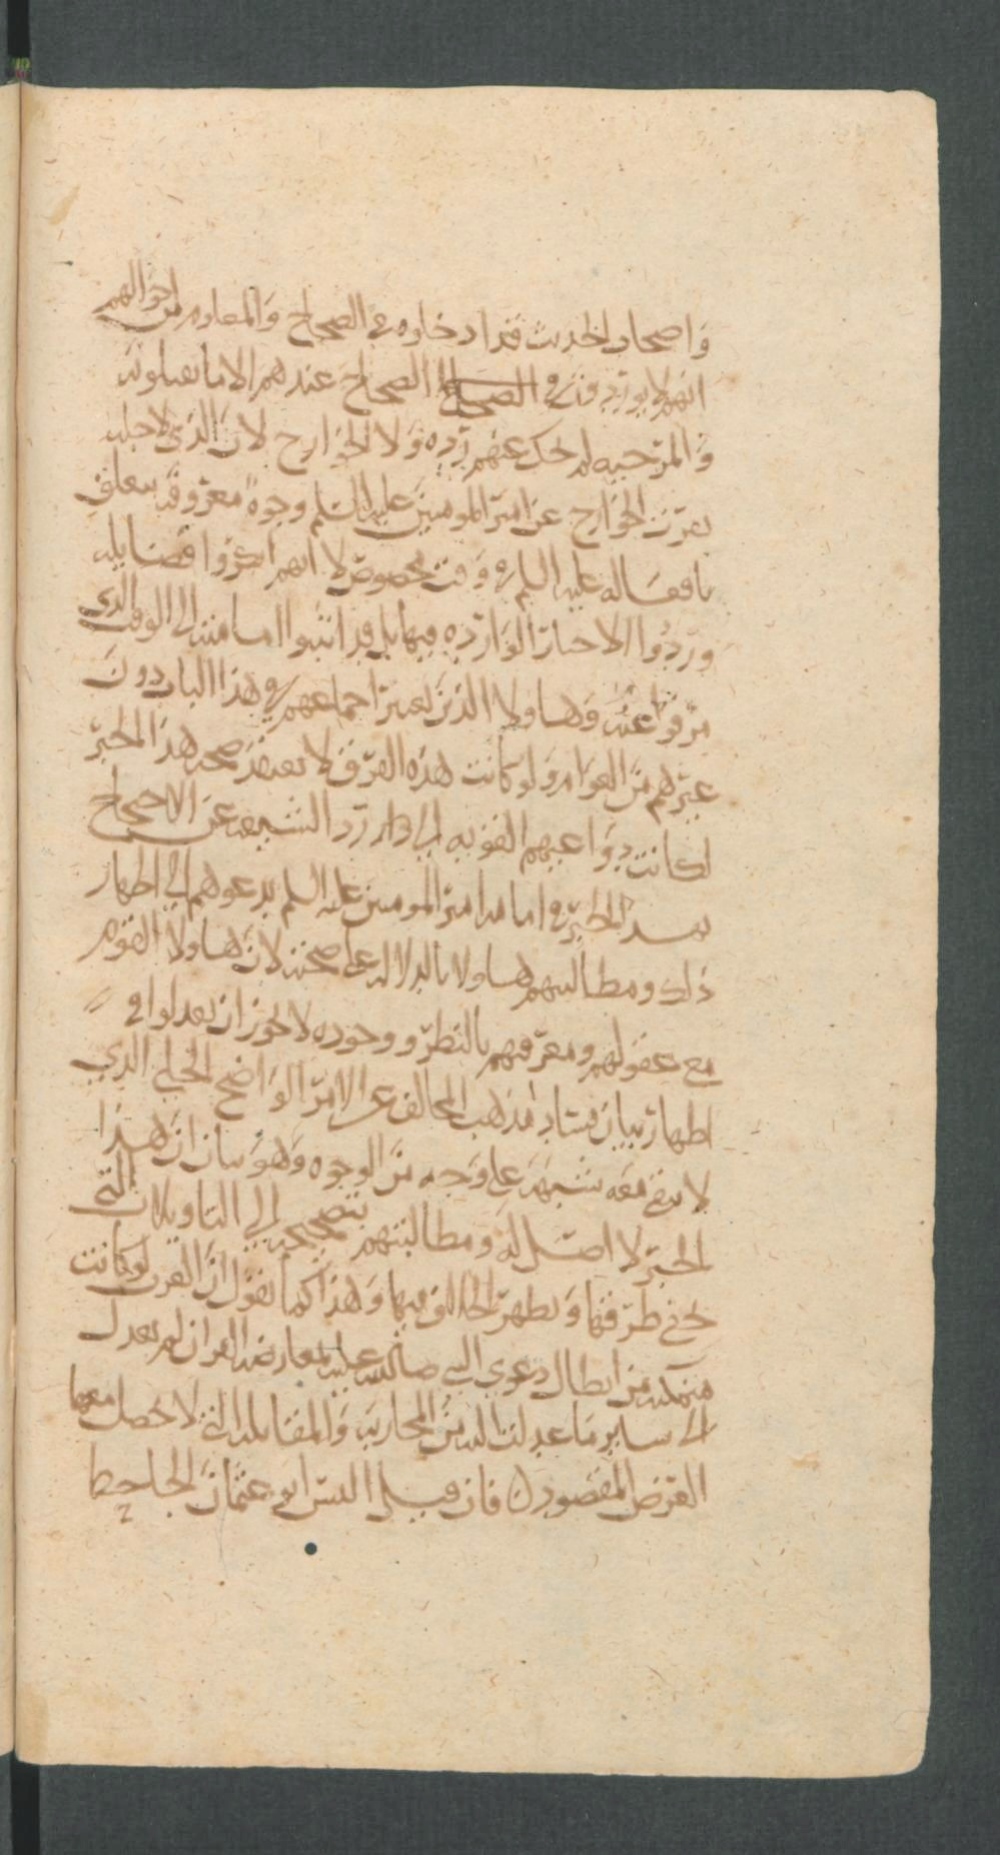 واصحاب الحديث فقد ادخلوه في الصحاح والمعلوم من احوالهم
انهم لا يوردون في الصحاح عندهم الا ما يقبلونه
والمرجيه لم يحك عنهم رده ولا الخوارج لان الذي لاجله
تبرت الخوارج عن امير المومنين عليه السلم وجوه معروفه يتعلق
بافعاله عليه السلم في وقت مخصوص لا انهم انكروا فضايله
وردوا الاخبار الوارده فيها بل قد اثبتوا امامته الى الوقت الذي
مرقوا عنه وهاولا الذين يعتبر اجماعهم في هذا الباب دون
غيرهم من العوام ولو كانت هذه الفرق لا تعتقد صحه هذا الخبر
لكانت دواعيهم القويه الى رد الشيعه عن الاحتجاج
بهذا الخبر في امامه امير المومنين عليه السلم يدعوهم الى اظهار
ذلك ومطالبتهم هاولا بالدلاله على صحته لان هاولا القوم
مع عقولهم ومعرفتهم بالنظر ووجوده لا يجوز ان يعدلوا في
اظهار بيان فساد مذهب المخالف عن الامر الواضح الجلي الذي
لا يبقى معه شبهة على وجه من الوجوه وهو بيان ان هذا
الخبر لا اصل له ومطالبتهم بتصحيحه الى التاويلات التي
يخفى طرقها ويظهر الخلاف فيها وهذا كما نقول ان العرب لو كانت
متمكنه من ابطال دعوى النبي صلى الله عليه بمعارضه القران لم تعدل
الى ساير ما عدلت اليه من المحاربه والمقابله التي لا يحصل معها
الغرض المقصود فان قيل اليس ابو عثمان الجاحظ